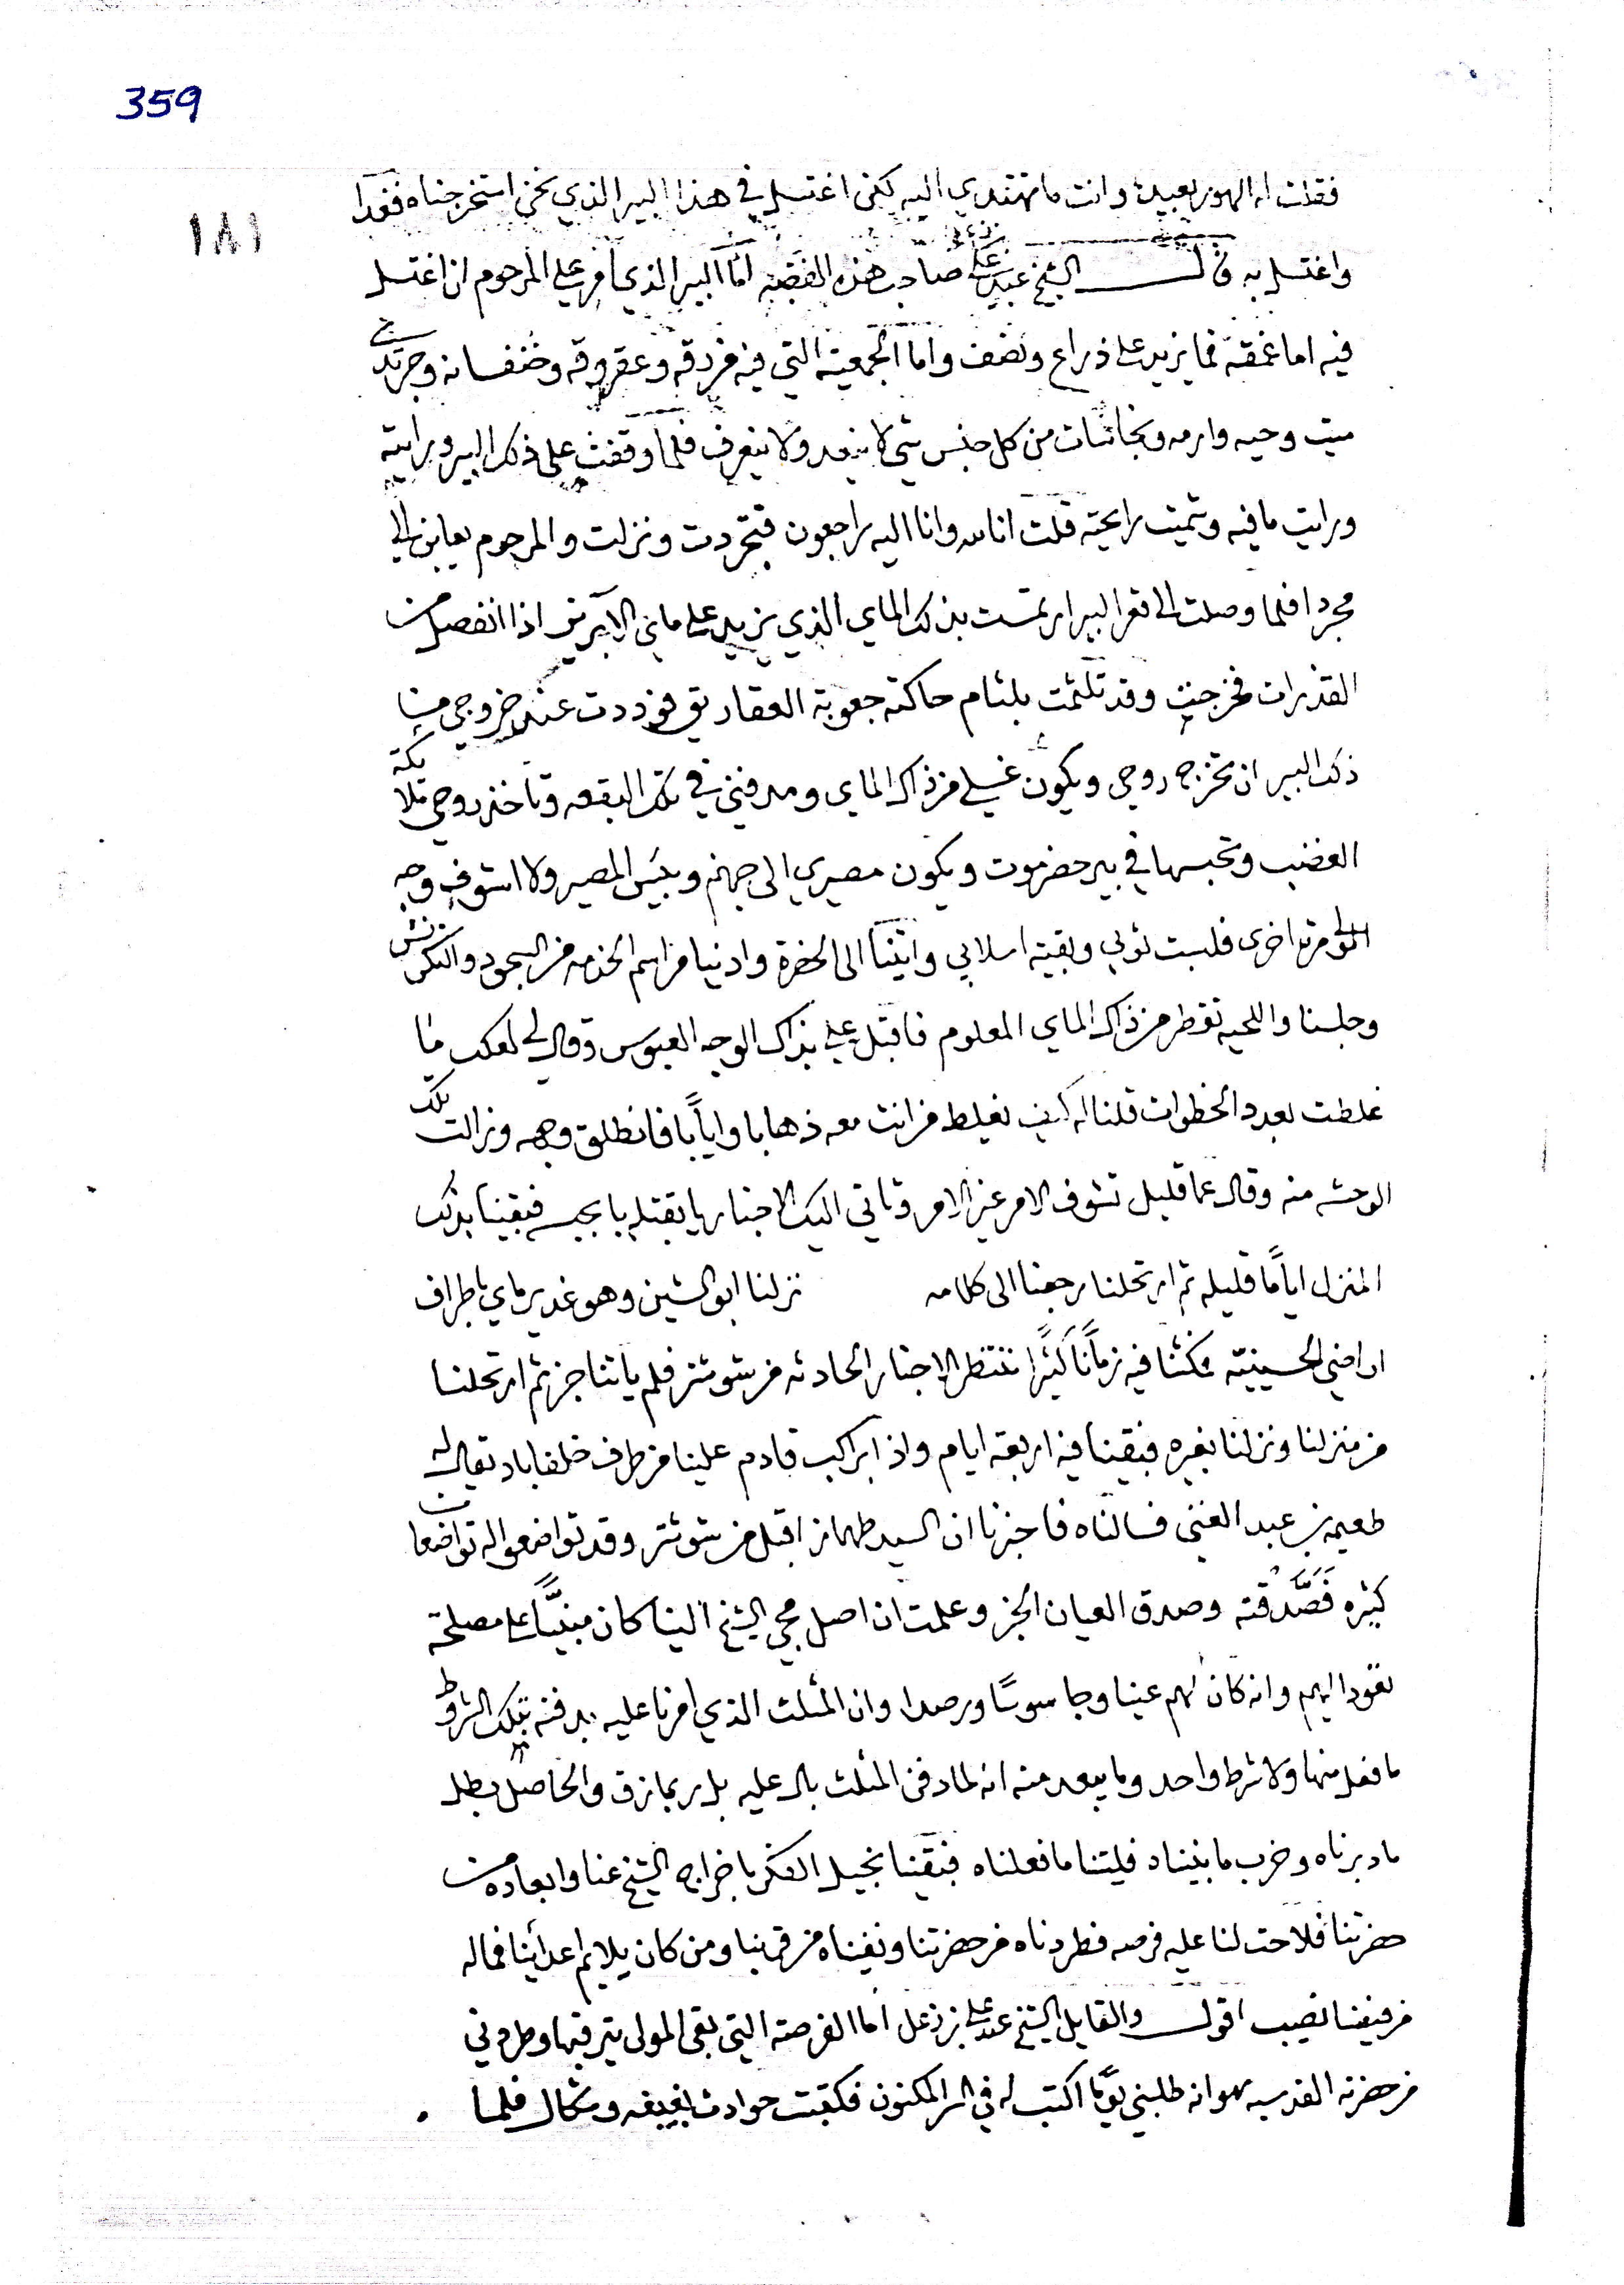 359
١٨١
فقلت له الهور بعيد وانت ما تهتدي اليه لكن اغتسل في هذا البير الذي نحن استخرجناه فغدا
واغتسل به قال الشيخ عبد علي صاحب هذه القضيه اما البير الذي امر علي المرحوم ان اغتسل
فيه اما غمقه فما يزيد على ذراع ونصف واما الجمعية التي فيه فردقه وعقروقه وخنفسانه وجريدي
ميت وحيه وارمه ونجاسات من كل جنس شي لا ينعد ولا ينعرف فلما وقفت على ذلك البير ورايته
ورايت ما فيه وشميت رايحته قلت انا لله وانا اليه راجعون فتجردت ونزلت والمرحوم يعاين الي
مجردا فلما وصلت الى قعر البير ارتمست بذلك الماي الذي يزيد على ماي الابريق اذا انفصل من
القذرات فخرجت وقد تلثمت بلثام حاكته جعوبة العقاريق فوددت عند خروجي من
ذلك البير ان تخرج روحي ويكون غسلي من ذاك الماي ومدفني في تلك البقعه وتاخذ روحي ملائكة
الغضب وتحبسها في بير حضرموت ويكون مصيري الى جهنم وبئس المصير ولا اشوف وجه
المولى مرة اخرى فلبست ثوبي وبقية اسلابي واتينا الى الحضرة وادينا مراسم الخدمه من السجود والنكرنش
وجلسنا واللحيه تقطر من ذاك الماي المعلوم فاقبل علي بذاك الوجه العبوس وقال لي لعلك ما
غلطت بعدد الخطوات قلنا له كيف يغلط من انت معه ذهابا وايابا فانطلق وجهه وزالت تلك
الوحشه منه وقال عما قليل تشوف الامر غير الامر وتاتي اليك الاخبار فبقينا بذلك
المنزل اياما قليله ثم ارتحلنا رجعنا الى كلامه نزلنا ابو الشين وهو غدير ماي باطراف
اراضي الحسينيه فمكثنا فيه زمانا كثيرا ننتظر الاخبار الحادثه من شوشتر فلم ياتنا خبر ثم ارتحلنا
من منزلنا ونزلنا بغيره فبقينا فيه اربعة ايام واذا براكب قادم علينا من طرف خلفاباد يقال له
طعيمه بن عبد الغني فسالناه فاخبرنا ان السيد طهماز اقبل من شوشتر وقد تواضعوا له تواضعات
كثيره فصدقته وصدق العيان الخبر وعلمت ان اصل مجي الشيخ الينا كان مبنيا على مصلحة
تعود اليهم وانه كان لهم عينا وجاسوسا ورصدا وان المثلث الذي امرنا عليه بدفنه بتلك الشروط
ما فعل منها ولا شرط واحد وما يبعد منه انه لما دفن المثلث بال عليه بل ربما زق والحاصل بطل
ما دبرناه وخرب ما بنيناه فليتنا ما فعلناه فبقينا نجيل الفكر باخراج الشيخ عنا وابعاده من
حضرتنا فلاحت لنا عليه فرصه فطردناه من حضرتنا ونفيناه من قربنا ومن كان يلايم اعدائنا فماله
من فيضنا نصيب اقول والقايل الشيخ عبد علي بن زعل اما الفرصة التي بقى المولى يترقبها وطردني
من حضرته القدسيه هو انه طلبني يوما اكتب له في السر المكنون فكتبت حوادث وشمال فلما